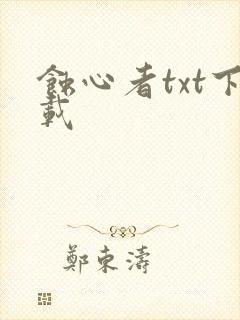 蝕心者txt下
載
鄭東濤